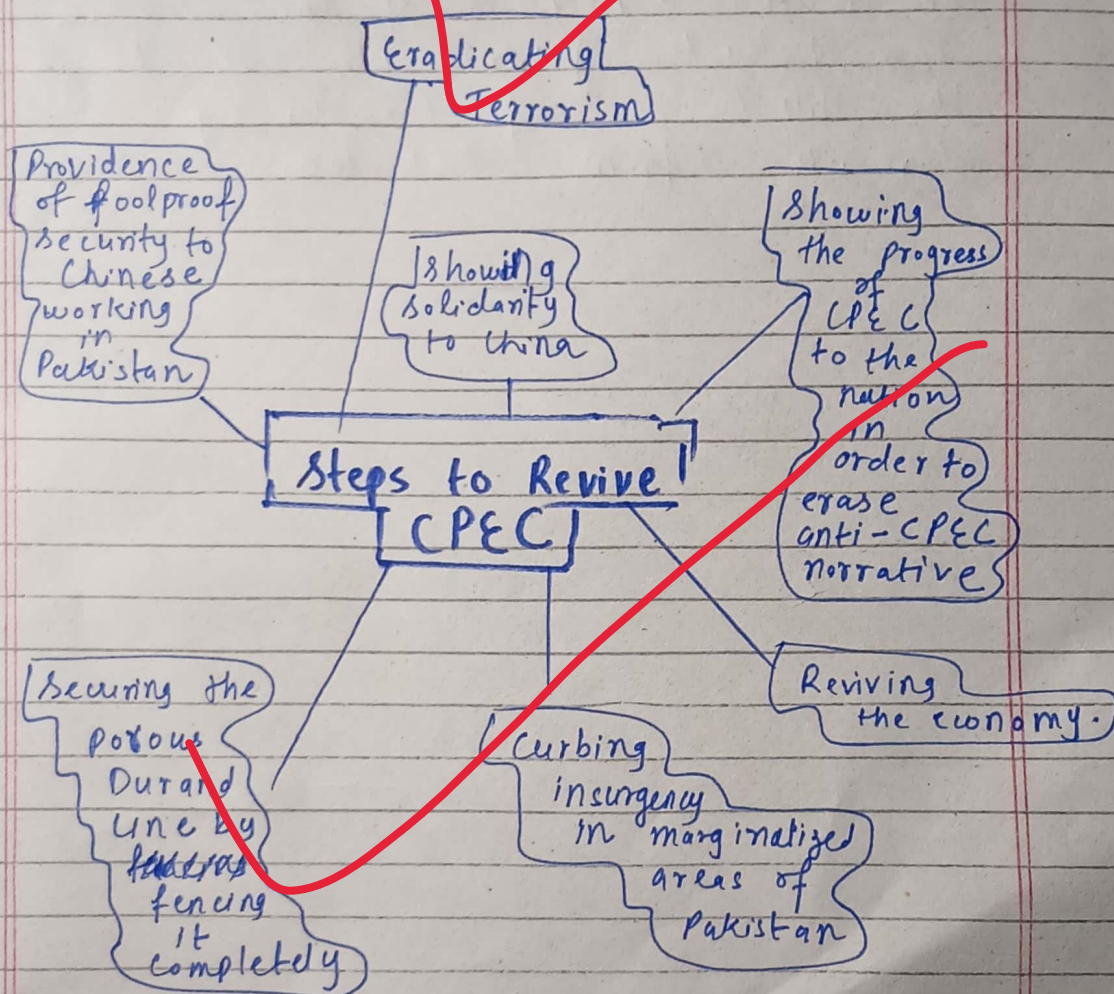 Eradicating
Terrorism
Providence
of foolproof
security to
Chinese
working
in
Pakistan
showing
solidarity
to China
Showing
the progress
of
CPEC
to the
nation
in
order to
erase
anti-CPEC
norrative
Steps to Revive
CPEC
Securing the
porous
Durand
Line by
fencing
it
completely
Curbing
insurgency
in marginalized
areas of
Pakistan
Reviving
the economy.